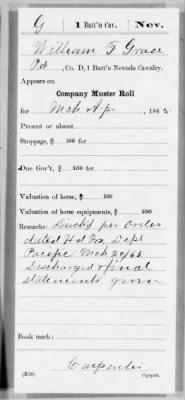 G | 1 Batt'n Cav. | Nev.
William T Grace
Pvt, Co. D, 1 Batt'n Nevada Cavalry.
Appears on
Company Muster Roll
for Mch & Apr, 1865.
Present or absent
Stoppage, $ 100 for
Due Gov't, $ 100 for
Valuation of horse, $ 100
Valuation of horse equipments, $ 100
Remarks: Disch'd per Order
dated Hd Qrs. Dept
Pacific Mch 20/65.
Discharge & final
statements given
Book mark:
Carpenter
(358) Copyist.